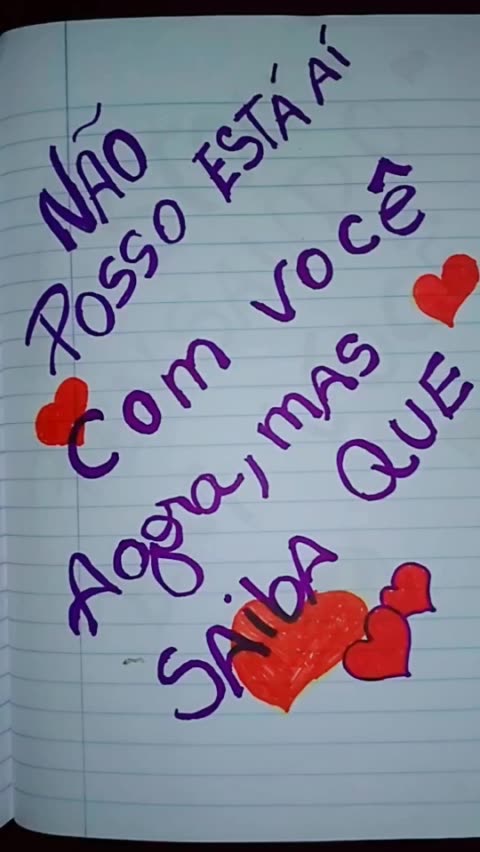 NÃO
POSSO ESTÁ AÍ
COM VOCÊ
Agora, MAS
SAIbA QUE